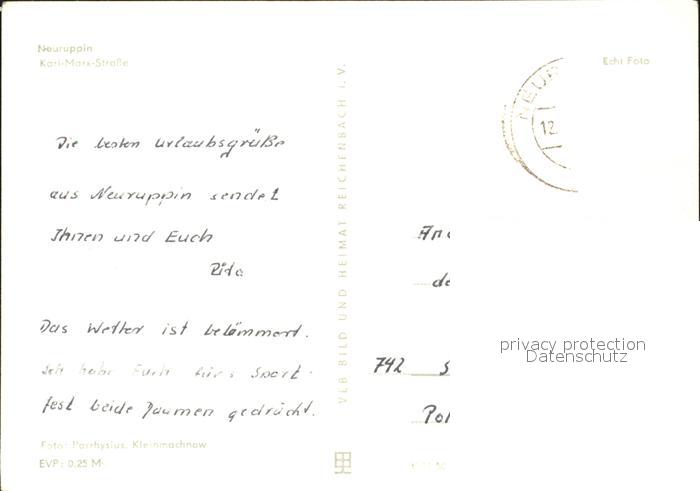 Neuruppin
Karl-Marx-Straße
Echt Foto
NEUR
12.
Die besten Urlaubsgrüße
aus Neuruppin sendet
Ihnen und Euch
Rita
Das Wetter ist belämmert.
Ich habe Euch fürs Sport-
fest beide Daumen gedrückt.
Foto: Parrhysius, Kleinmachnow
EVP: 0,25 M
VEB BILD UND HEIMAT REICHENBACH I. V.
An
de
742 S
Pol
privacy protection
Datenschutz